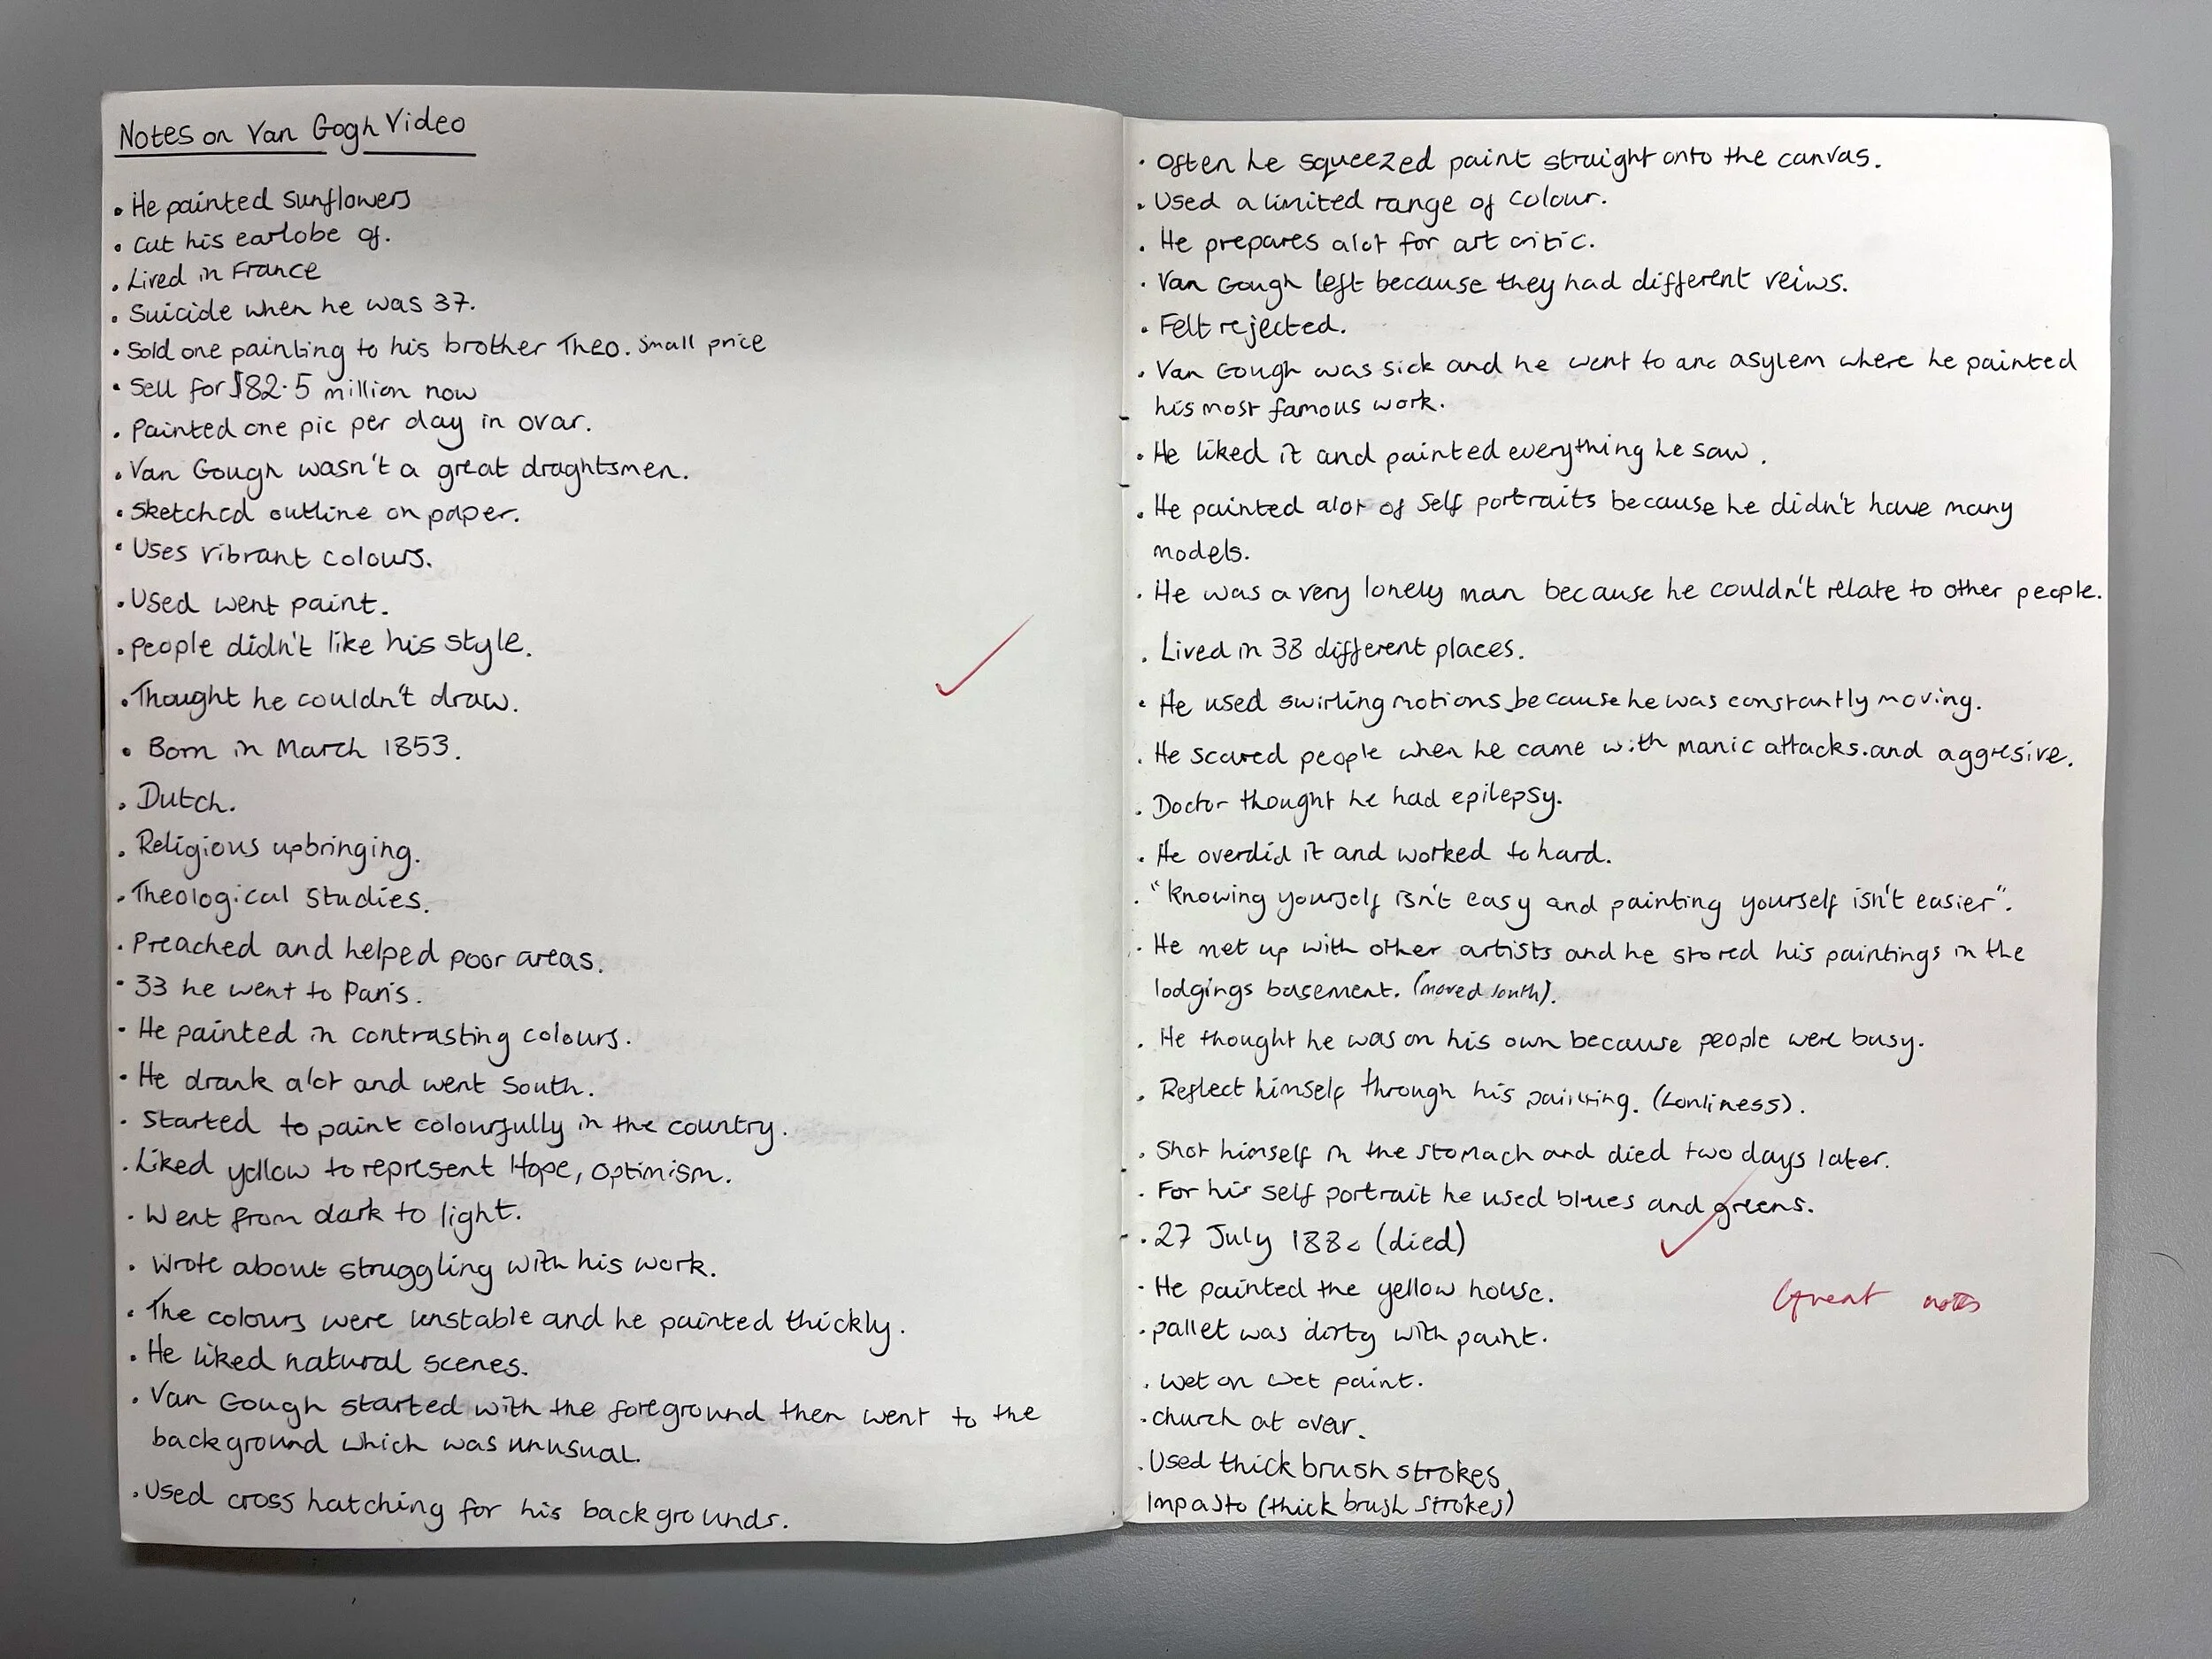 Notes on Van Gogh Video
• He painted sunflowers
• Cut his earlobe of.
• Lived in France
• Suicide when he was 37.
• Sold one painting to his brother Theo. small price
• Sell for $82.5 million now
• Painted one pic per day in ovar.
• Van Gough wasn't a great draghtsmen.
• Sketched outline on paper.
• Uses vibrant colours.
• Used went paint.
• People didn't like his style.
• Thought he couldn't draw.
• Born in March 1853.
• Dutch.
• Religious upbringing.
• Theological Studies.
• Preached and helped poor areas.
• 33 he went to Paris.
• He painted in contrasting colours.
• He drank alot and went South.
• Started to paint colourfully in the country.
• Liked yellow to represent Hope, Optimism.
• Went from dark to light.
• Wrote about struggling with his work.
• The colours were unstable and he painted thickly.
• He liked natural scenes.
• Van Gough started with the foreground then went to the
background which was unusual.
• Used cross hatching for his backgrounds.
• Often he squeezed paint straight onto the canvas.
• Used a limited range of colour.
• He prepares alot for art critic.
• Van Gough left because they had different veiws.
• Felt rejected.
• Van Gough was sick and he went to an asylem where he painted
his most famous work.
• He liked it and painted everything he saw.
• He painted alot of Self portraits because he didn't have many
models.
• He was a very lonely man because he couldn't relate to other people.
• Lived in 38 different places.
• He used swirling motions because he was constantly moving.
• He scared people when he came with manic attacks.and aggresive.
• Doctor thought he had epilepsy.
• He overdid it and worked to hard.
• "Knowing yourself isn't easy and painting yourself isn't easier".
• He met up with other artists and he stored his paintings in the
lodgings basement. (moved south).
• He thought he was on his own because people were busy.
• Reflect himself through his painting. (Lonliness).
• Shot himself in the stomach and died two days later.
• For his self portrait he used blues and greens.
• 27 July (died)
• He painted the yellow house.
• pallet was dirty with paint.
• Wet on wet paint.
• church at ovar.
• Used thick brush strokes
Impasto (thick brush strokes)
Great notes